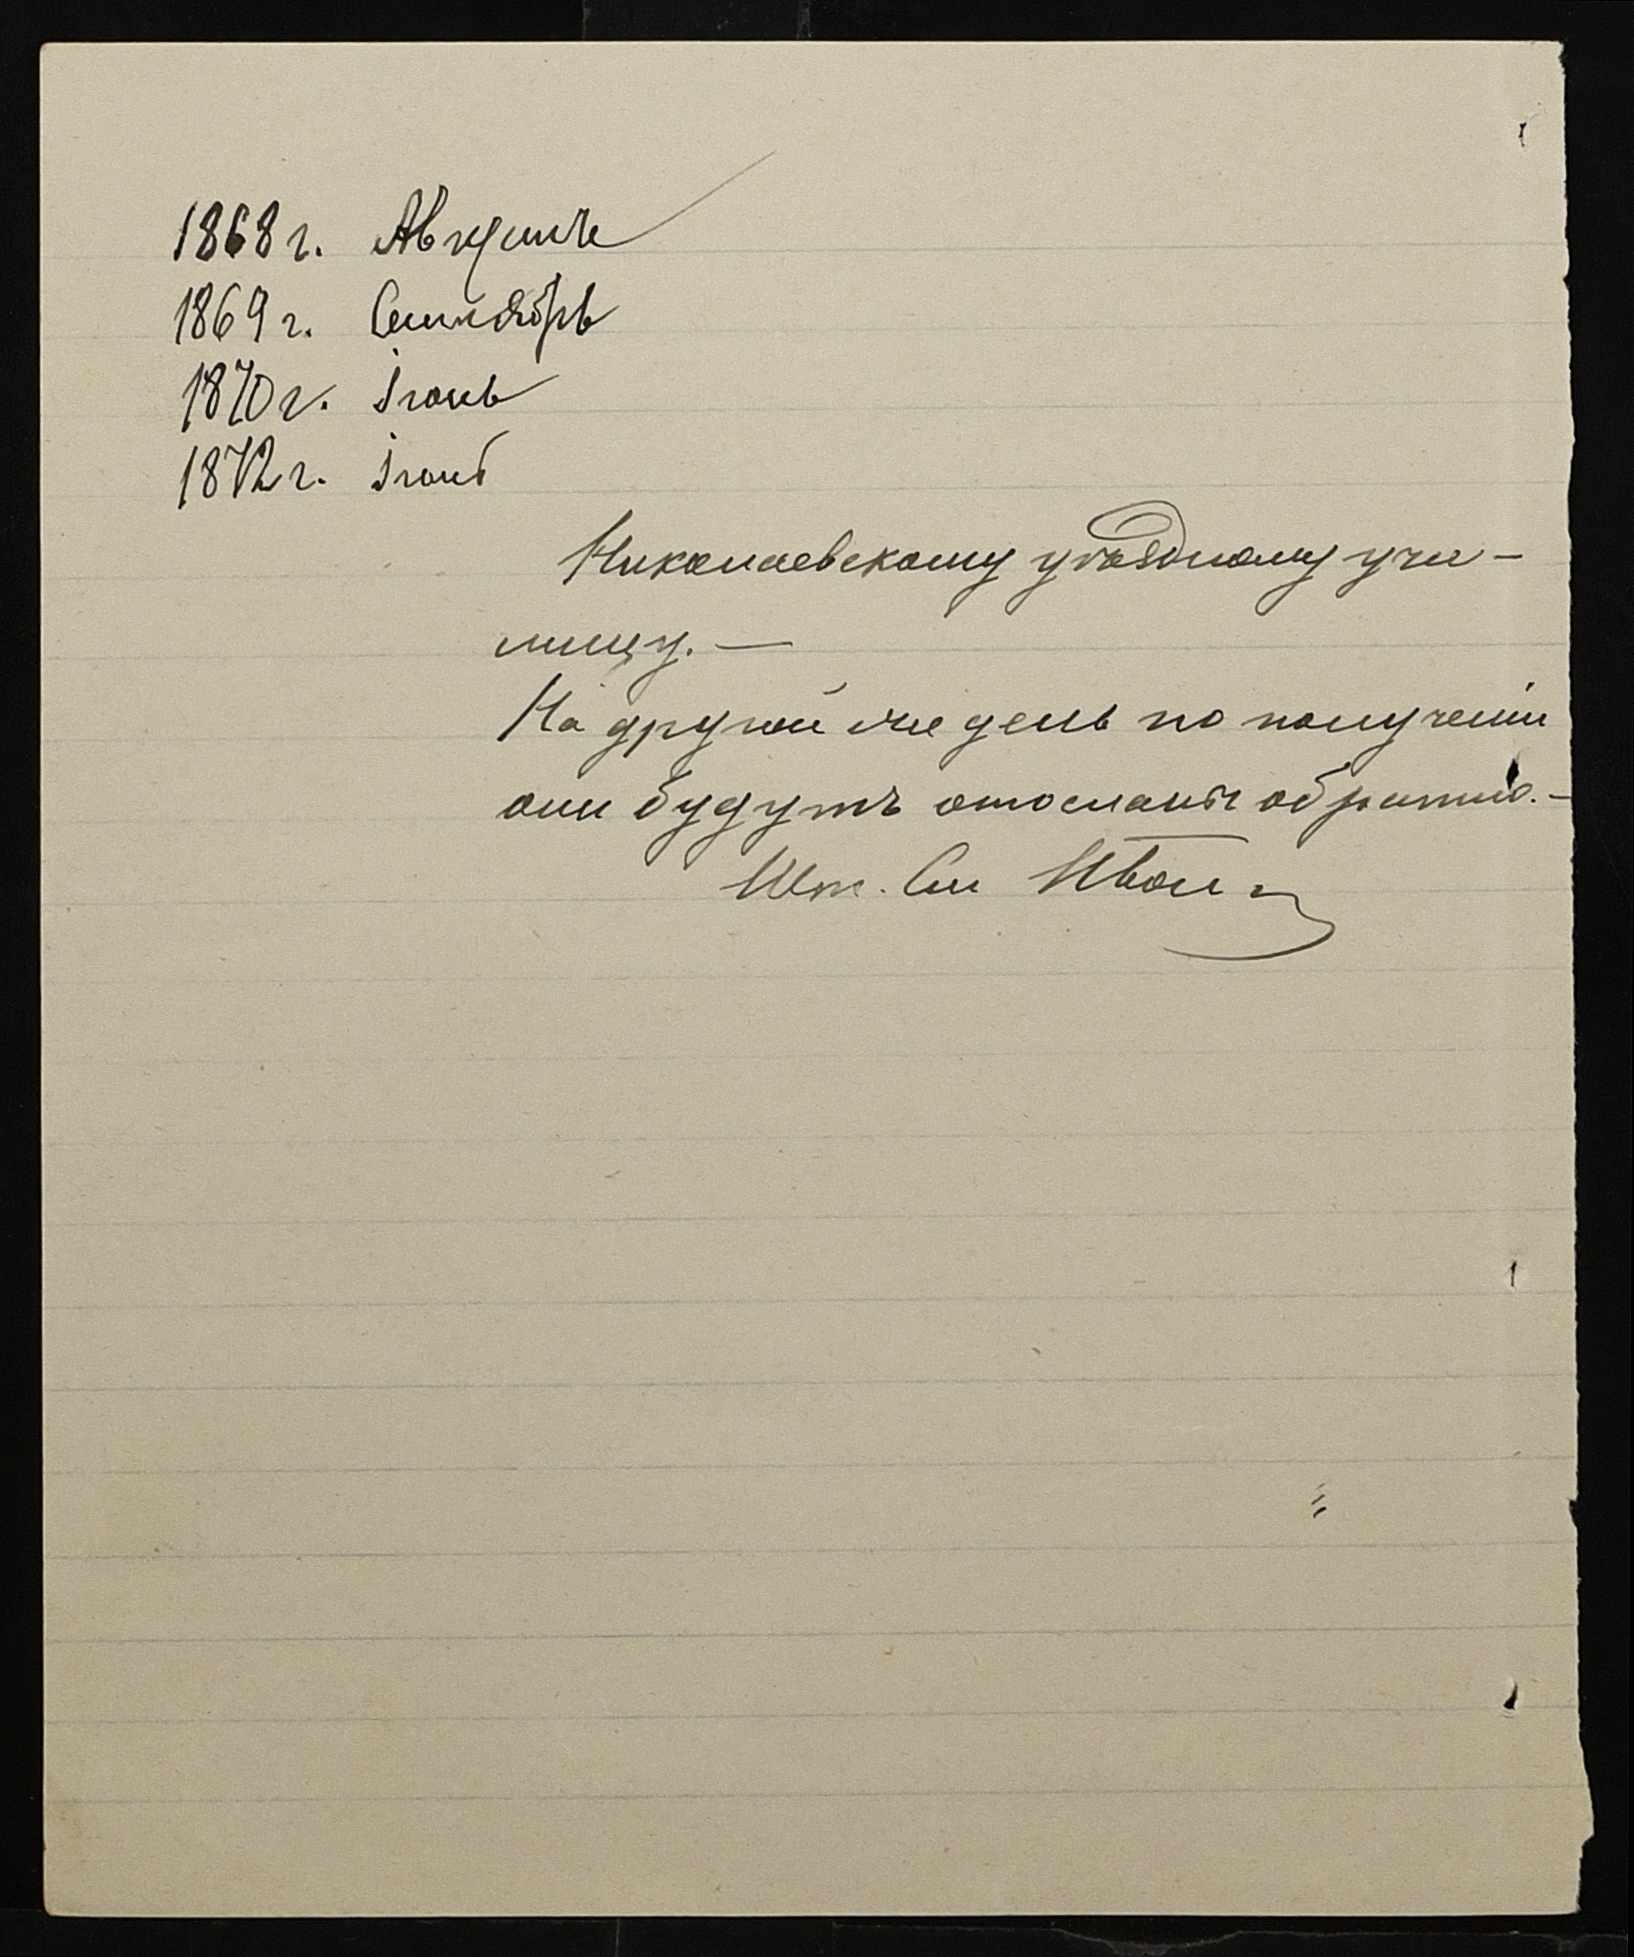 1868 г. Августъ
1869 г. Сентябрь
1870 г. Іюнь
1872 г. Іюнь
Николаевскому уѣздному учи-
лищу. —
На другой же день по полученіи
они будутъ отосланы обратно. —
Шт. См. Иван